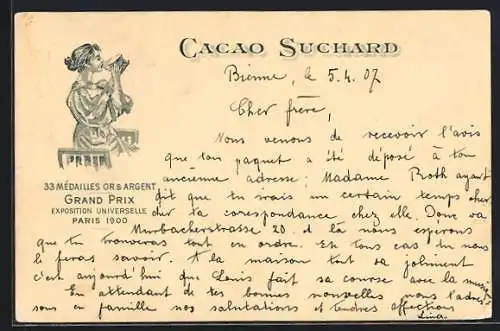 CACAO SUCHARD
Bienne, le 5.4.07
Cher frère,
Nous venons de recevoir l'avis
que ton paquet a été déposé à ton
ancienne adresse; Madame Roth ayant
dit que tu irais un certain temps cher
cher ta corespondance chez elle. Donc va
Murbacherstrasse 20. et là nous espérons
que tu trouveras tout en ordre. En tous cas tu nous
le feras savoir. A la maison tout va joliment
c'est aujourd'hui que Louis fait sa course avec la
En attendant de tes bonnes nouvelles nous
sous en famille nos salutations et tendres affections
Lina.
33 MÉDAILLES OR & ARGENT
GRAND PRIX
EXPOSITION UNIVERSELLE
PARIS 1900